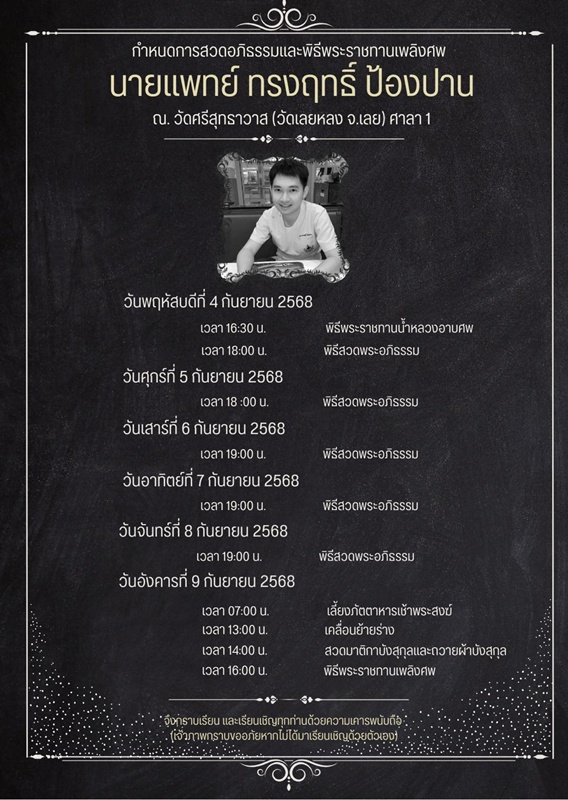 กำหนดการสวดอภิธรรมและพิธีพระราชทานเพลิงศพ
นายแพทย์ ทรงฤทธิ์ ป้องปาน
ณ. วัดศรีสุทราวาส (วัดเลยหลง จ.เลย) ศาลา 1
วันพฤหัสบดีที่ 4 กันยายน 2568
เวลา 16:30 น. พิธีพระราชทานน้ำหลวงอาบศพ
เวลา 18:00 น. พิธีสวดพระอภิธรรม
วันศุกร์ที่ 5 กันยายน 2568
เวลา 18 :00 น. พิธีสวดพระอภิธรรม
วันเสาร์ที่ 6 กันยายน 2568
เวลา 19:00 น. พิธีสวดพระอภิธรรม
วันอาทิตย์ที่ 7 กันยายน 2568
เวลา 19:00 น. พิธีสวดพระอภิธรรม
วันจันทร์ที่ 8 กันยายน 2568
เวลา 19:00 น. พิธีสวดพระอภิธรรม
วันอังคารที่ 9 กันยายน 2568
เวลา 07:00 น. เลี้ยงภัตตาหารเช้าพระสงฆ์
เวลา 13:00 น. เคลื่อนย้ายร่าง
เวลา 14:00 น. สวดมาติกาบังสุกุลและถวายผ้าบังสุกุล
เวลา 16:00 น. พิธีพระราชทานเพลิงศพ
จึงกราบเรียน และเรียนเชิญทุกท่านด้วยความเคารพนับถือ
(เจ้าภาพกราบขออภัยหากไม่ได้มาเรียนเชิญด้วยตัวเอง)